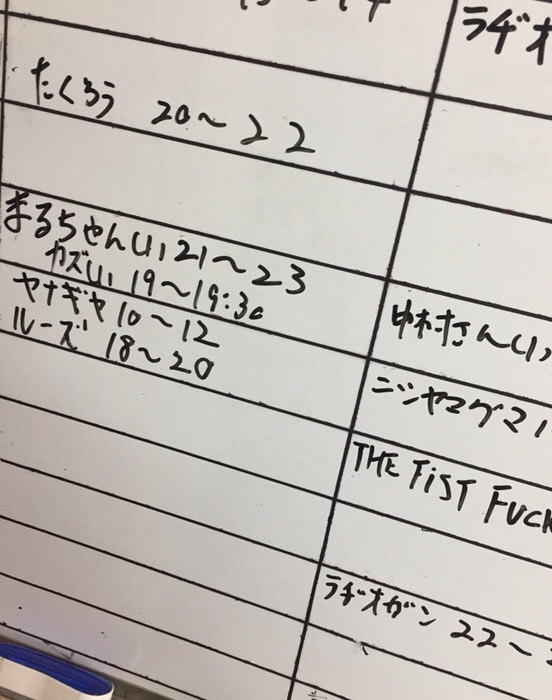 ラヂオ
たくろう 20〜22
まるちゃん(1)21〜23
カズ(1) 19〜19:30
ヤナギヤ 10〜12
ルーズ 18〜20
中村さん(1)
ニシヤマグマ
THE FiST FUCK
ラヂオガン 22〜